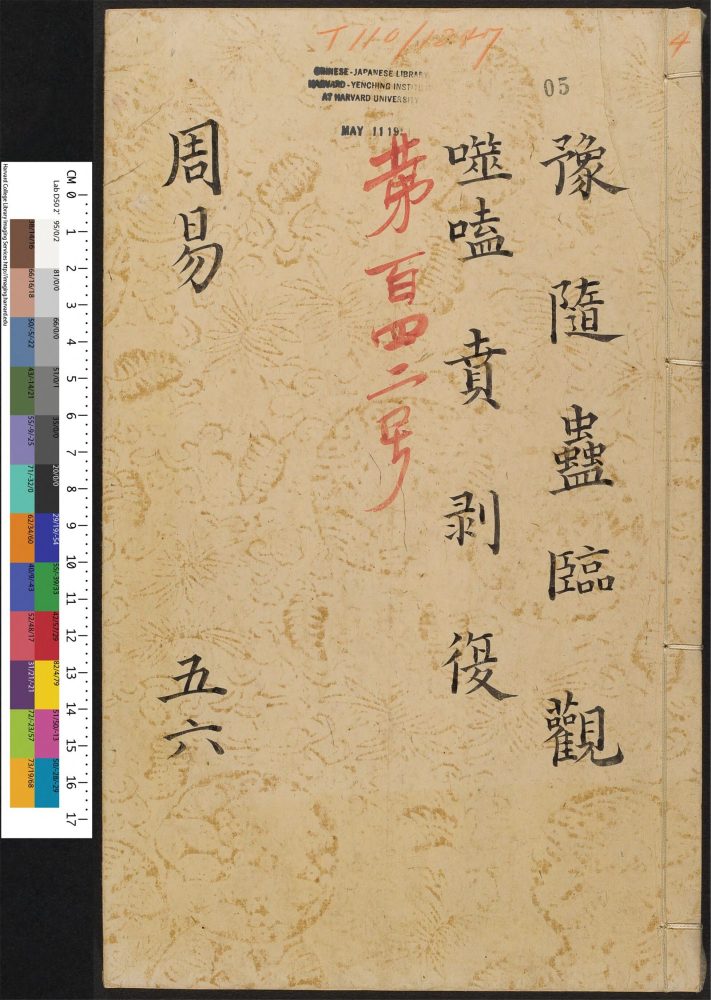 T 110/1247
4
CHINESE-JAPANESE LIBRARY
HARVARD-YENCHING INSTITU
AT HARVARD UNIVERSITY
MAY 11 19
05
豫隨蠱臨觀
噬嗑賁剥復
第百四二号
周易
五六
CM 0 1 2 3 4 5 6 7 8 9 10 11 12 13 14 15 16 17
Lab D50 2˚ 95/0/2 81/0/0 66/0/0 51/0/1 35/0/0 20/0/0 29/19/-54 55/-39/33 42/57/29 82/4/79 51/50/-13 50/-28/-29
38/14/16 66/16/18 50/-5/-22 43/-14/21 55/-9/-25 71/-32/0 62/34/60 40/9/-43 52/48/17 31/21/-21 72/-23/57 73/19/68
Harvard College Library Imaging Services http://imaging.harvard.edu